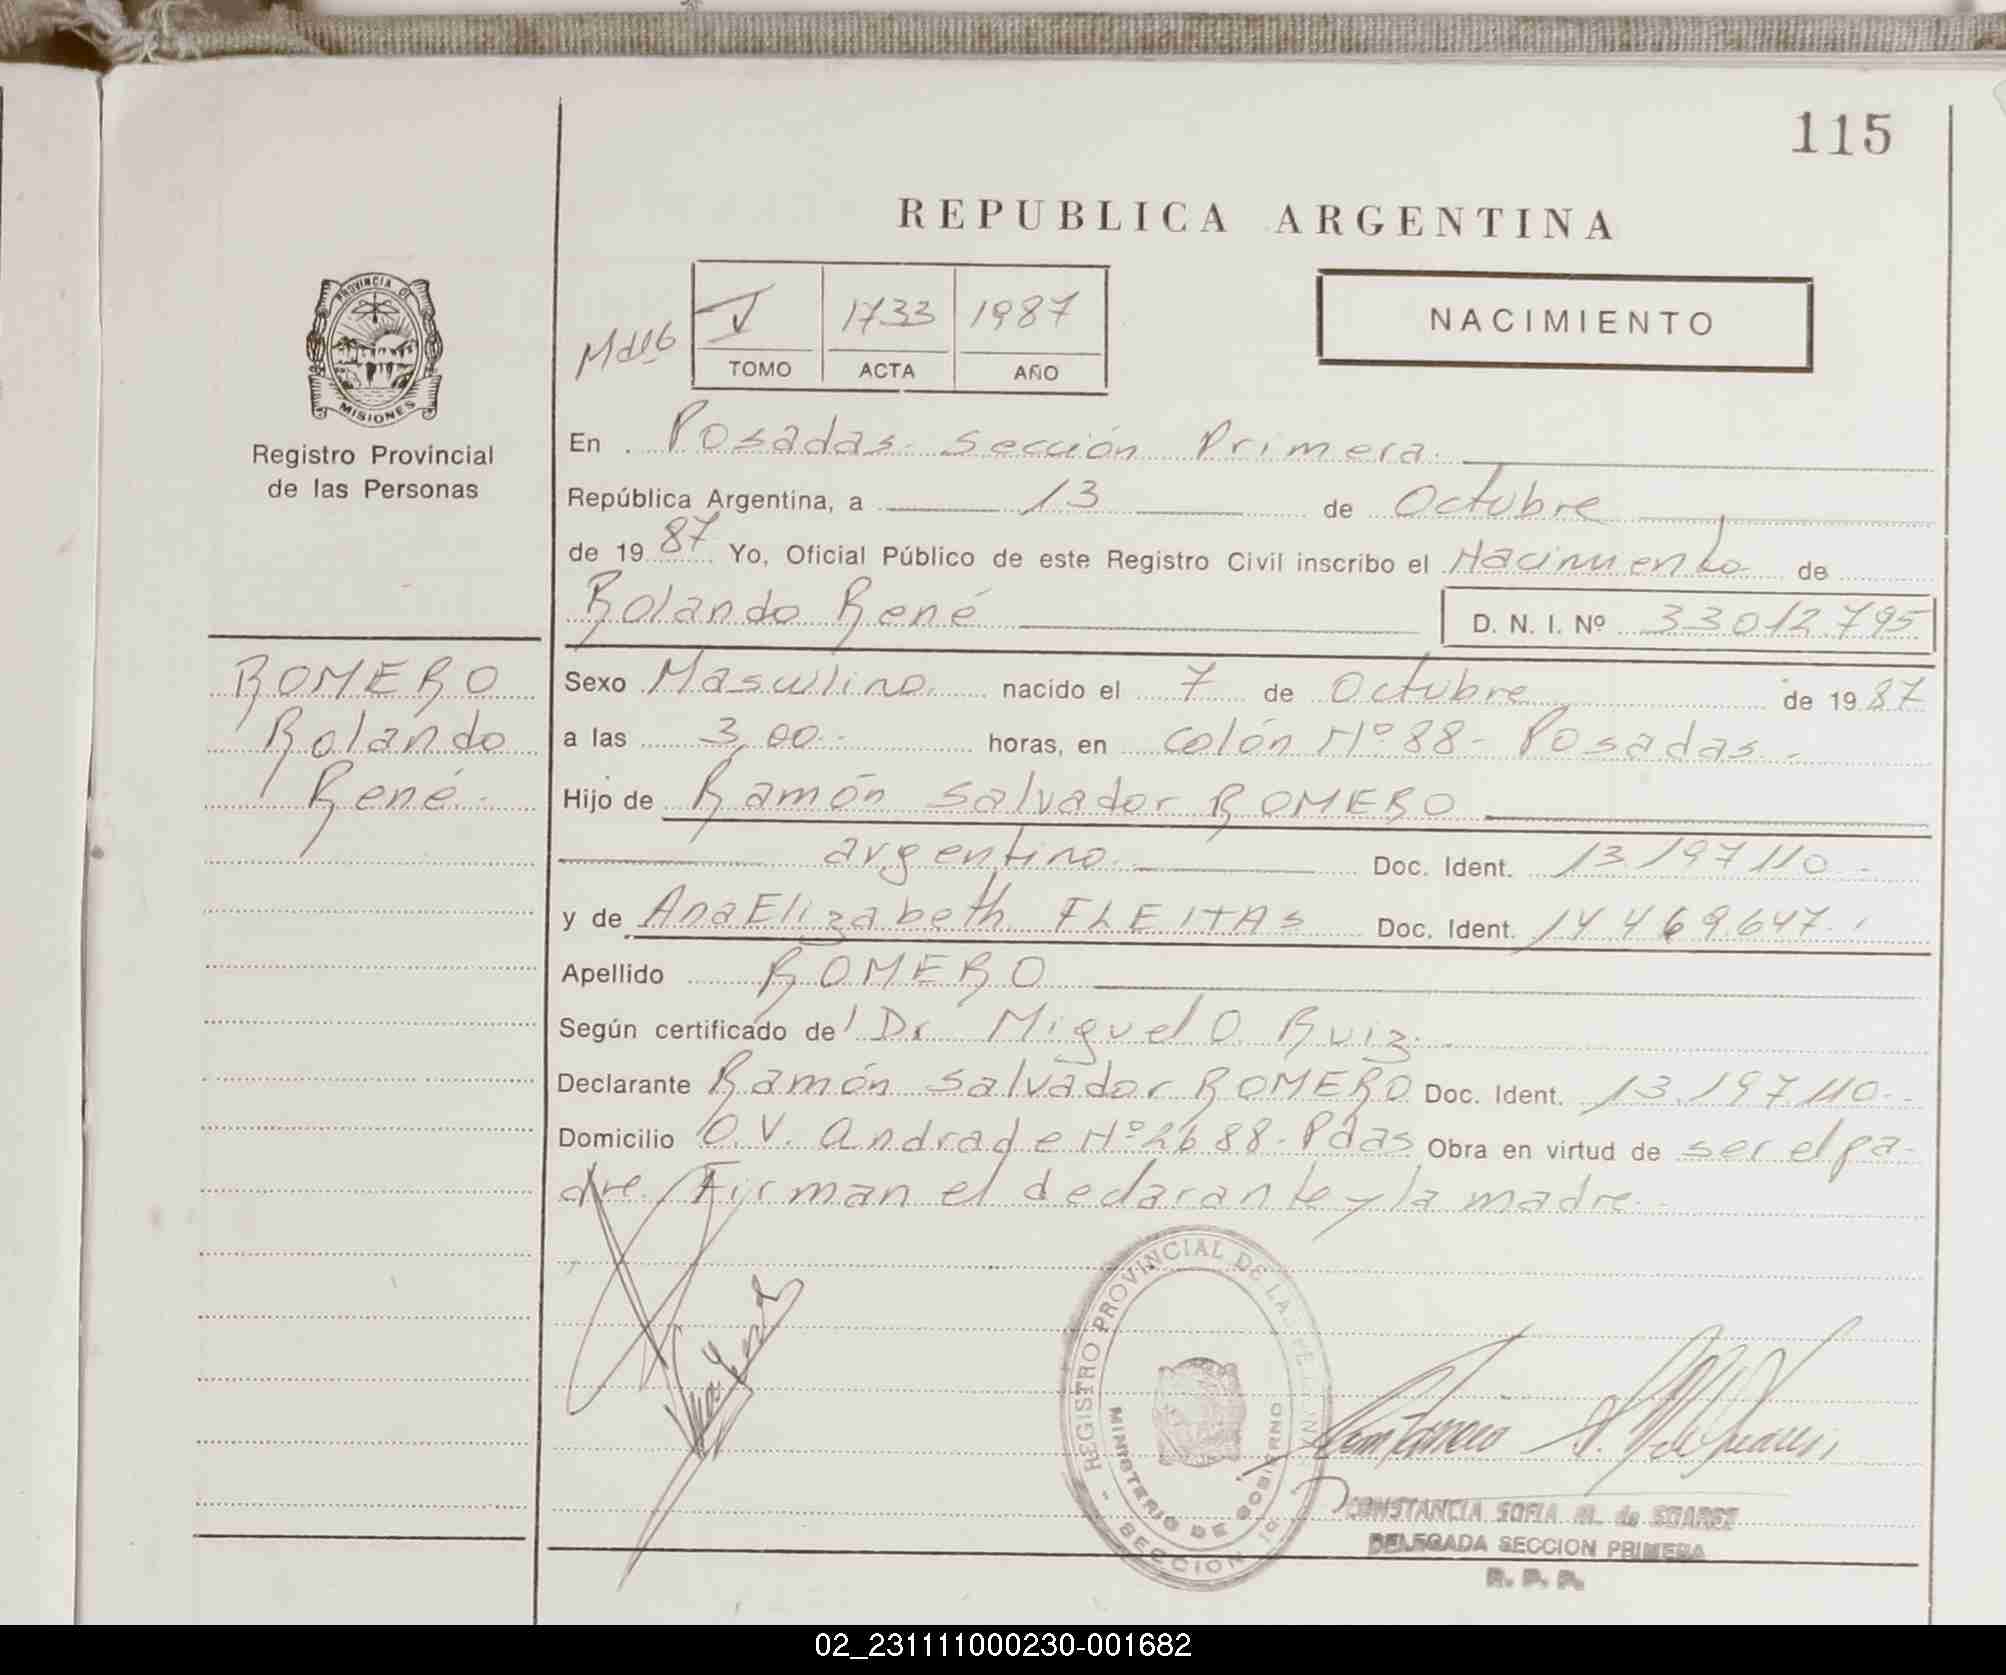 115
REPUBLICA ARGENTINA
PROVINCIA DE
MISIONES
Registro Provincial
de las Personas
1733 1987
TOMO ACTA AÑO
NACIMIENTO
En Posadas. Sección Primera.
República Argentina, a 13 de Octubre
de 1987 Yo, Oficial Público de este Registro Civil inscribo el Nacimiento de
Rolando René D. N. I. Nº 33012.795
ROMERO
Rolando
René.
Sexo Masculino nacido el 7 de Octubre de 1987
a las 3,00. horas, en Colón Nº 88- Posadas.-
Hijo de Ramón Salvador ROMERO
argentino Doc. Ident. 13.197.110.-
y de Ana Elizabeth FLEITAS Doc. Ident. 14.469.647.
Apellido ROMERO
Según certificado del Dr. Miguel O. Ruiz.
Declarante Ramón Salvador ROMERO Doc. Ident. 13.197.110.-
Domicilio O.V. Andrade Nº 2688.-Pdas Obra en virtud de ser el pa-
dre. Firman el declarante y la madre.-
REGISTRO PROVINCIAL DE LAS
MINISTERIO DE GOBIERNO
SECCION
CONSTANCIA SOFIA M. de SUAREZ
DELEGADA SECCION PRIMERA
R. P. P.
02_231111000230-001682